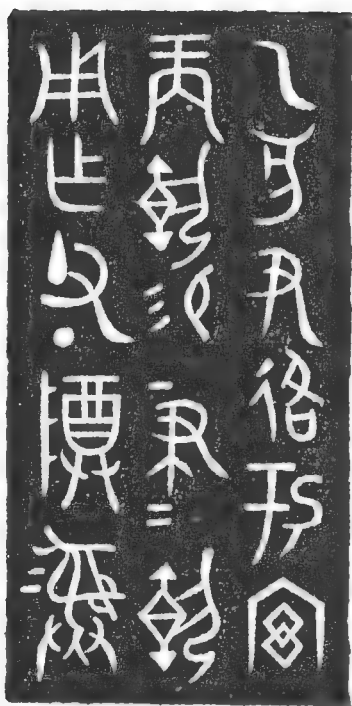 乙亥尹佫于宮
商執易聿二執
用乍父丁尊彝